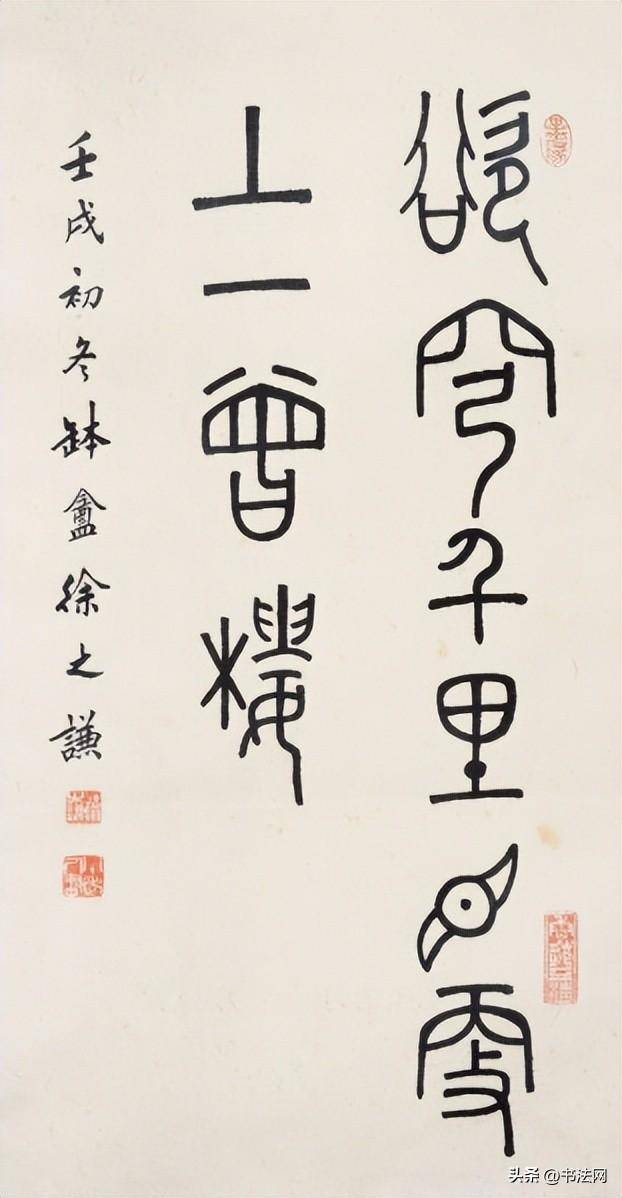 欲穹千里目更
上一曾樓
壬戌初冬缽盦徐之謙
头条 @书法网